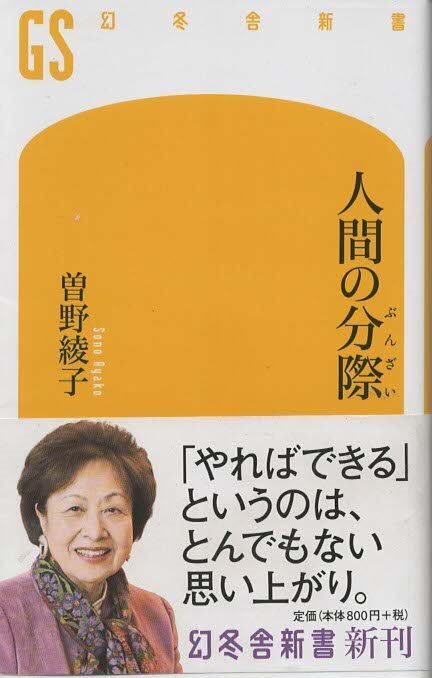 GS 幻冬舎新書
人間の分際
ぶんざい
曽野綾子
Sono Ayako
「やればできる」
というのは、
とんでもない
思い上がり。
定価(本体800円+税)
幻冬舎新書 新刊